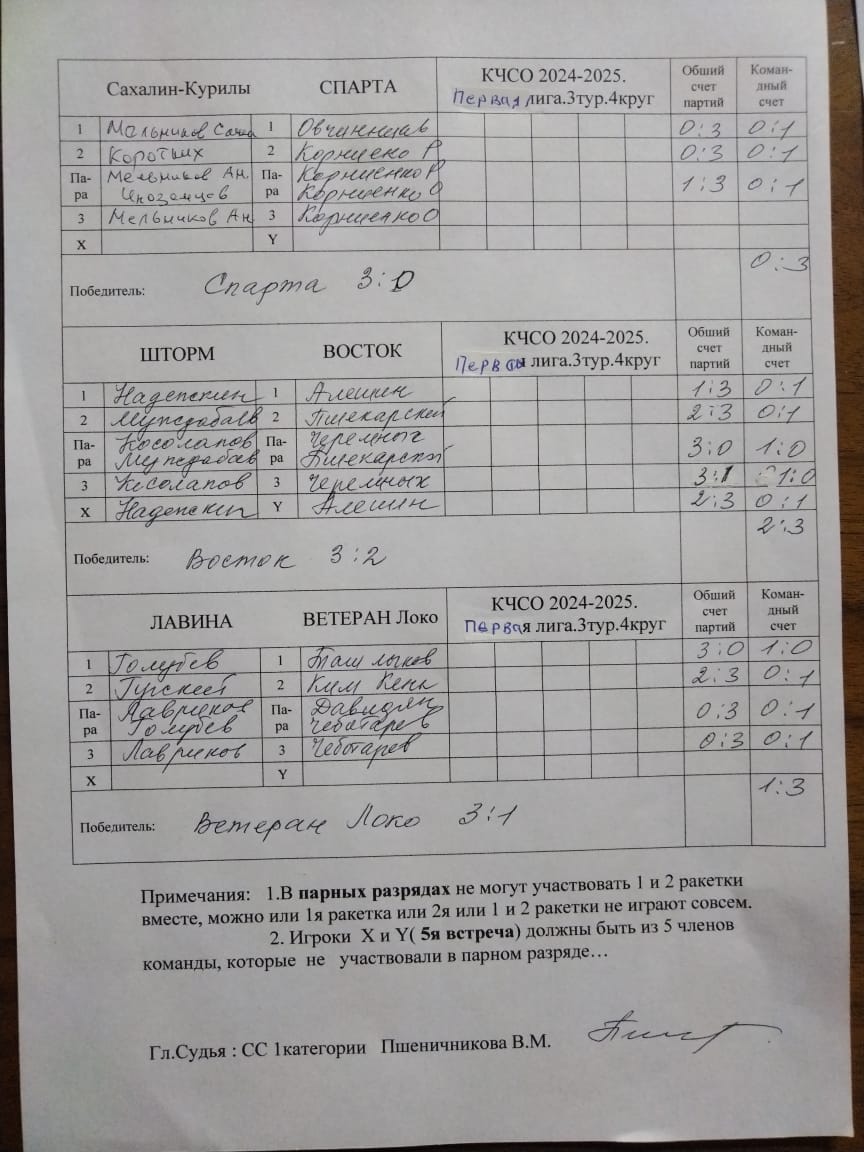 Сахалин-Курилы СПАРТА КЧСО 2024-2025. Первая лига.3тур.4круг Общий счет партий Коман-дный счет
1 Мельников Саша 1 Овчинников 0:3 0:1
2 Коротких 2 Корниенко Р 0:3 0:1
Па-ра Мельников Ан. Иноземцов Па-ра Корниенко Р Корниенко О 1:3 0:1
3 Мельников Ан 3 Корниенко О
X Y
0:3
Победитель: Спарта 3:0
ШТОРМ ВОСТОК КЧСО 2024-2025. Первая лига.3тур.4круг Общий счет партий Коман-дный счет
1 1 Алешин 1:3 0:1
2 2 2:3 0:1
Па-ра Косолапов Па-ра Черемных 3:0 1:0
3 Косолапов 3 Черемных 3:1 1:0
X Y Алешин 2:3 0:1
2:3
Победитель: Восток 3:2
ЛАВИНА ВЕТЕРАН Локо КЧСО 2024-2025. Первая лига.3тур.4круг Общий счет партий Коман-дный счет
1 Голубев 1 Ташлыков 3:0 1:0
2 2 Ким 2:3 0:1
Па-ра Лавриков Голубев Па-ра Давидян Чеботарев 0:3 0:1
3 Лавриков 3 Чеботарев 0:3 0:1
X Y
1:3
Победитель: Ветеран Локо 3:1
Примечания: 1.В парных разрядах не могут участвовать 1 и 2 ракетки
вместе, можно или 1я ракетка или 2я или 1 и 2 ракетки не играют совсем.
2. Игроки X и Y( 5я встреча) должны быть из 5 членов
команды, которые не участвовали в парном разряде…
Гл.Судья : СС 1категории Пшеничникова В.М.